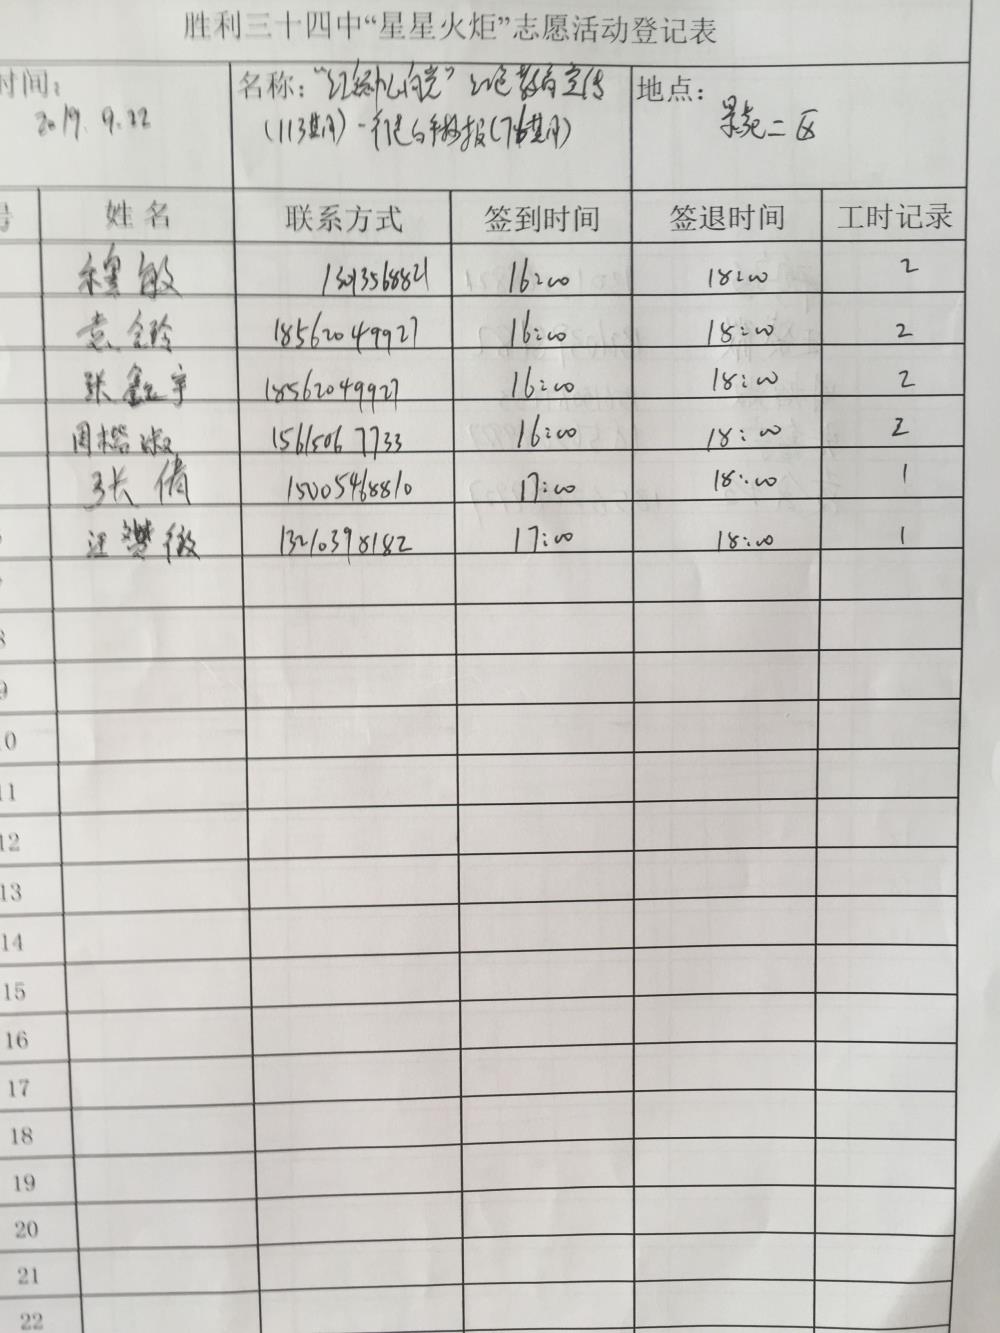 胜利三十四中“星星火炬”志愿活动登记表
时间: 名称: 红色教育宣传 地点:
2019.9.22 (113期) 手抄报(76期) 景苑二区
号 姓名 联系方式 签到时间 签退时间 工时记录
穆敏 16:00 18:00 2
袁玲 18562049927 16:00 18:00 2
张鑫宇 18562049927 16:00 18:00 2
周 淑 15615067733 16:00 18:00 2
张倩 15005468810 17:00 18:00 1
汪 薇 13210398182 17:00 18:00 1
8
9
10
11
12
13
14
15
16
17
18
19
20
21
22